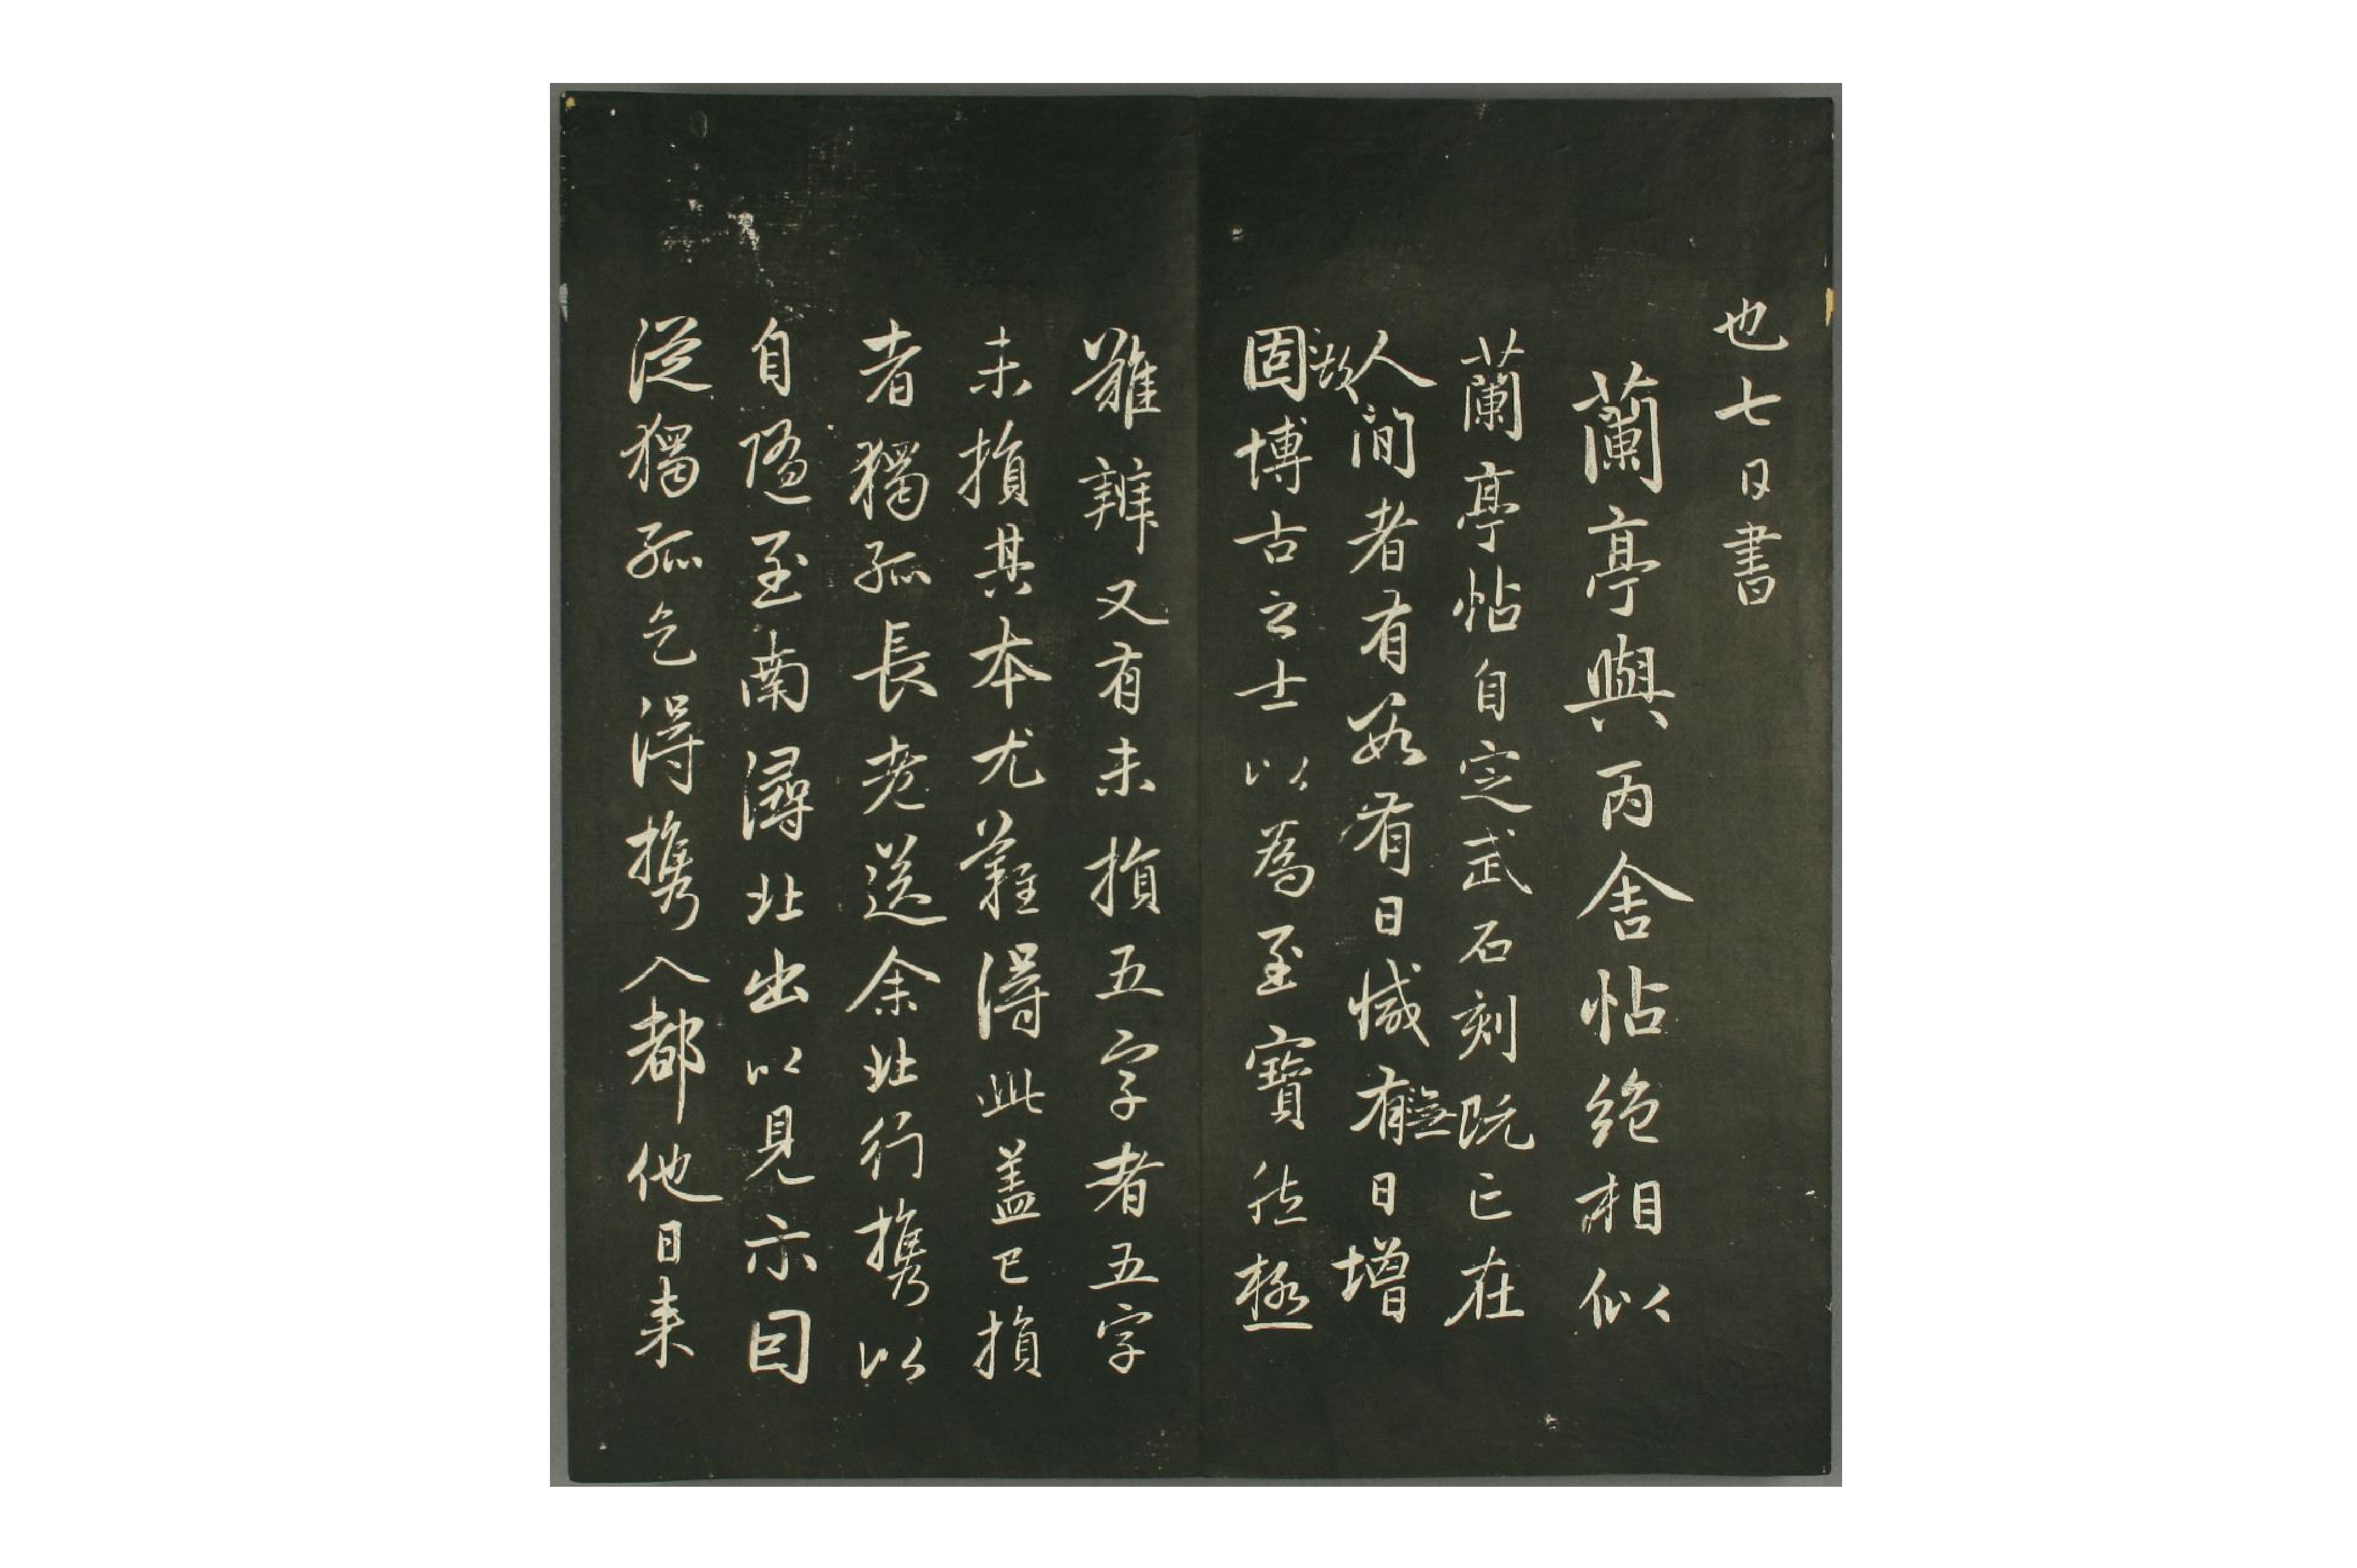 也七日書
蘭亭與丙舍帖絕相似
蘭亭帖自定武石刻既亡在
人間者有數有日減有無日增
故
固博古之士以為至寶然極
難辨又有未損五字者五字
未損其本尤難得此蓋已損
者獨孤長老送余北行攜以
自隨至南潯北出以見示因
從獨孤乞得攜入都他日來